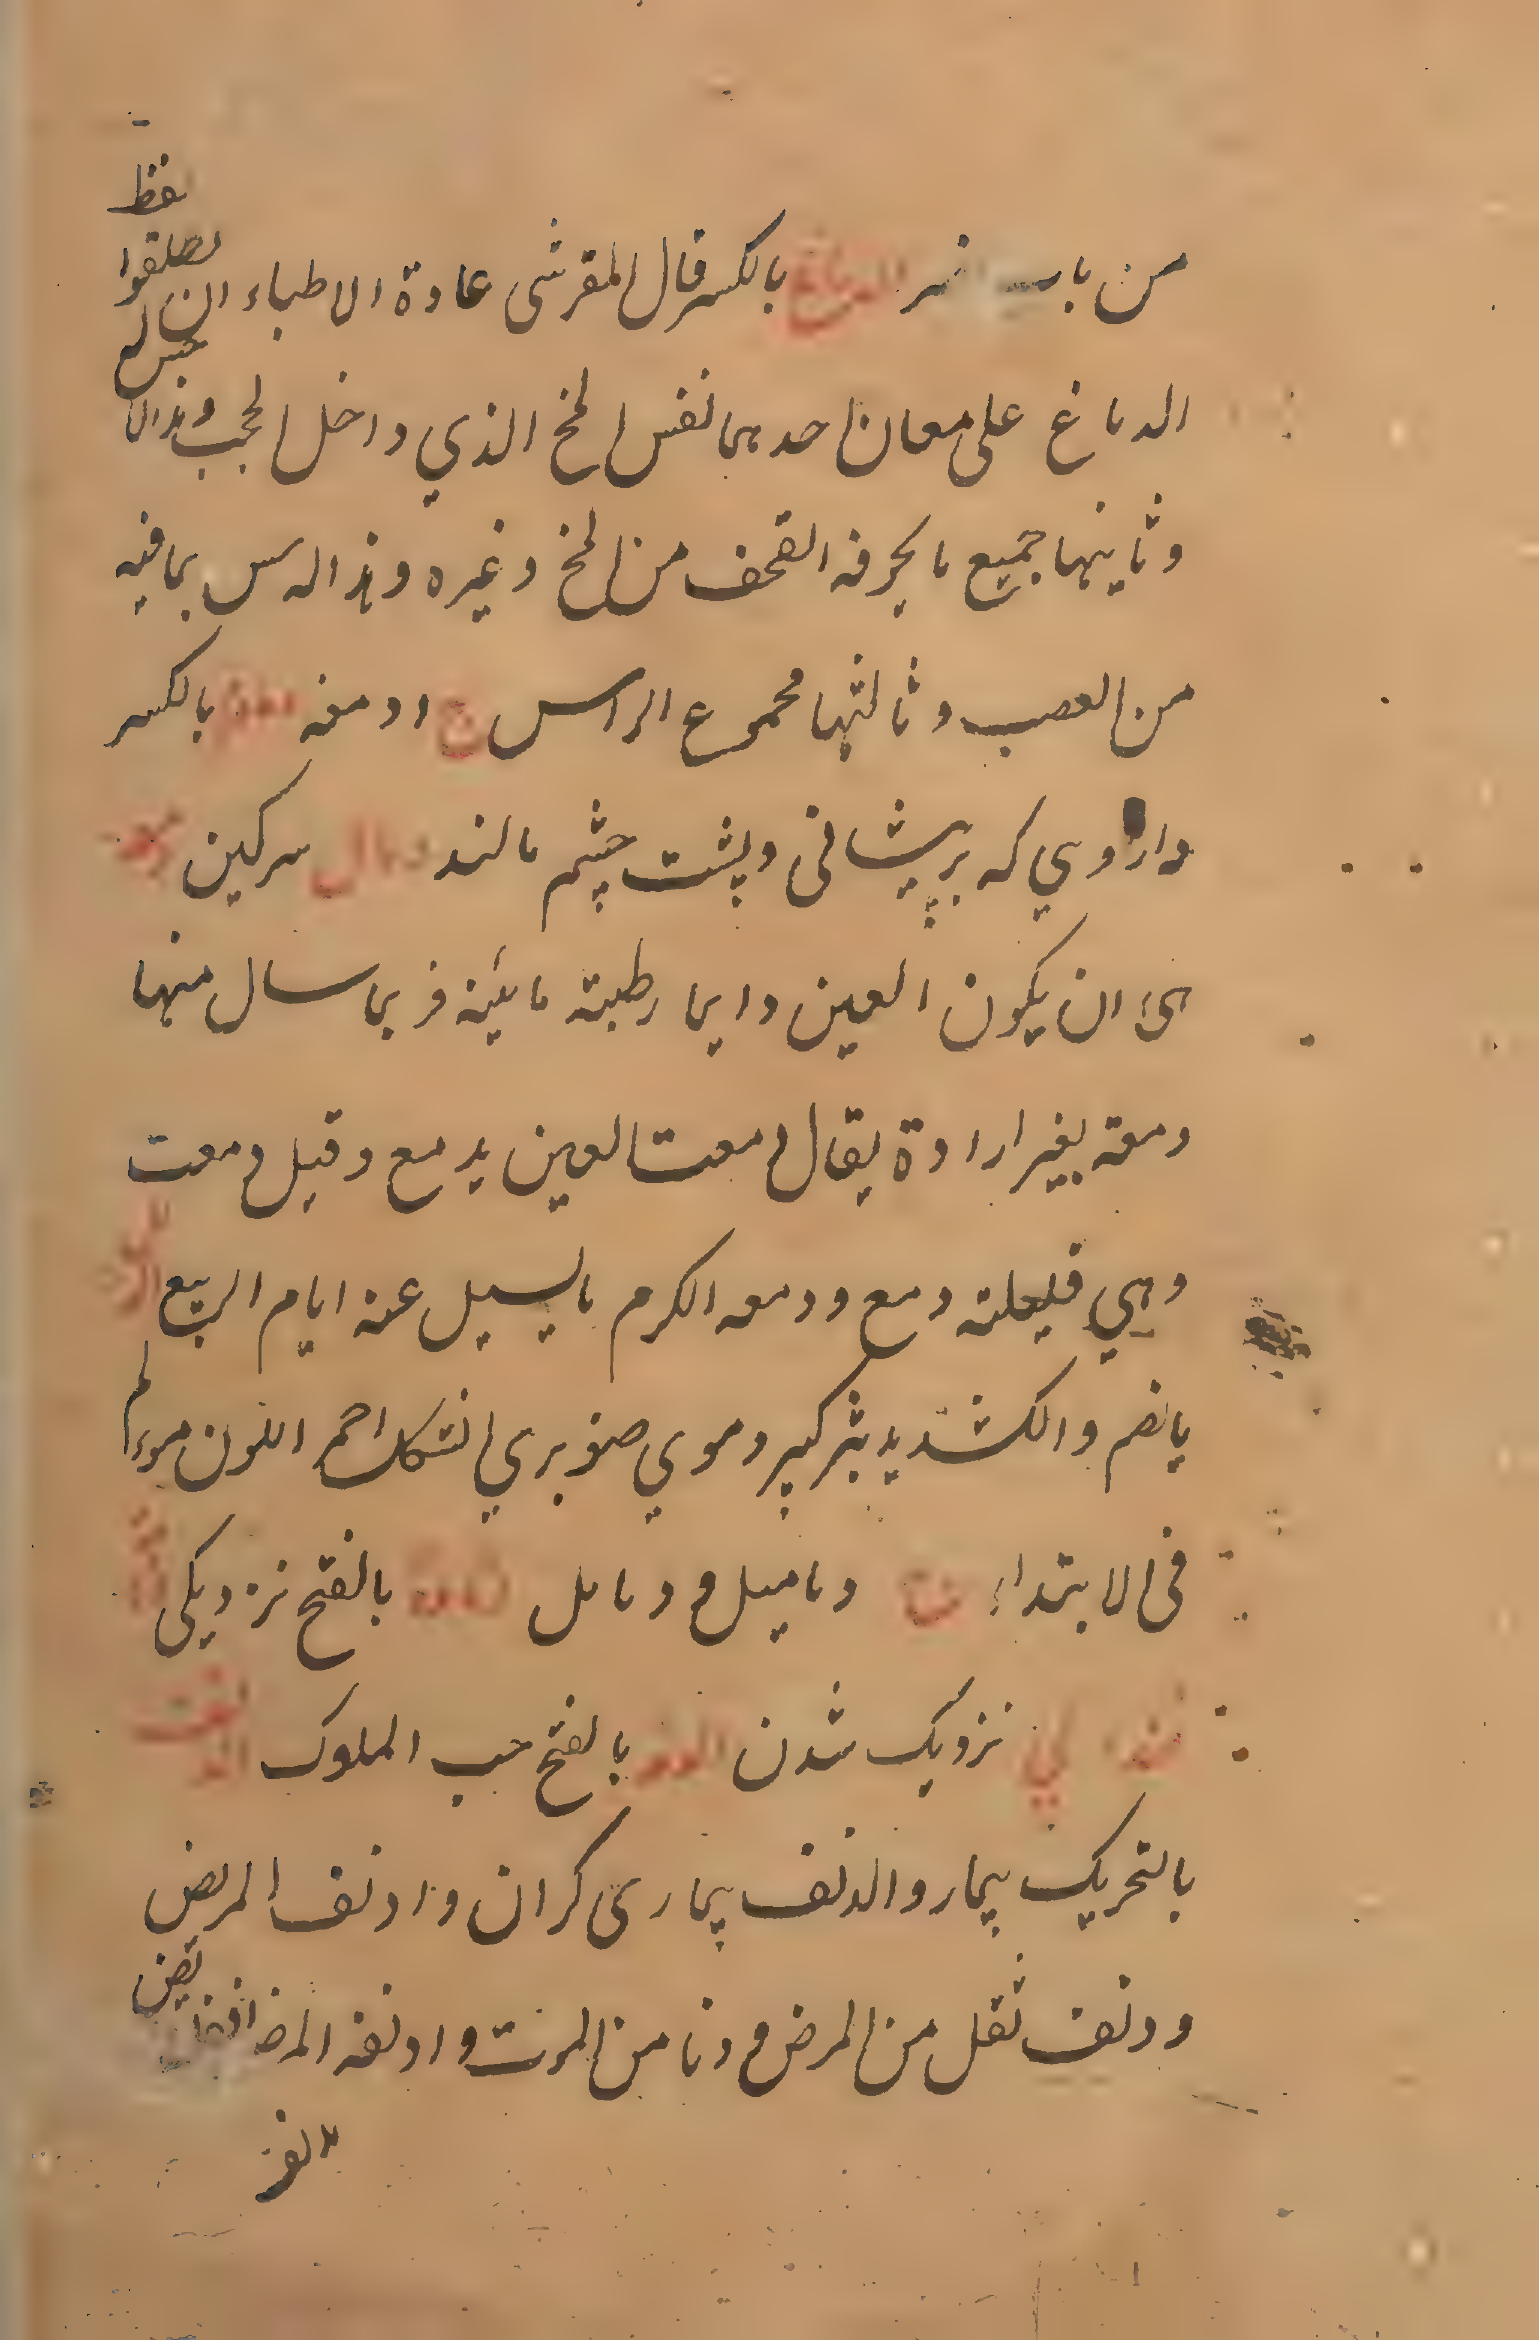 من باب نصر الدماغ بالكسر قال القرشى عادة الاطباء ان يطلقوا لفظ
الدماغ على معان احدهما نفس المخ الذي داخل الحجب
وثانيها جميع ما يحرفه القحف من المخ وغيره وهذا له حس بما فيه
من العصب وثالثها مجموع الراس ج ادمغه بالكسر
داروي كه بر پيشانى و پشت چشم مالند دمال سركين دمعه
هى ان يكون العين دايما رطبة مائية فربما سال منها
دمعة بغير ارادة يقال دمعت العين يدمع وقيل دمعت
وهي فليعلة دمع ودمعه الكرم ما يسيل عنه ايام الربيع
بالضم والتشديد بثر كبير دموي صنوبري الشكل احمر اللون مؤلم
فى الابتداء ج دماميل و دمامل بالفتح نزديكى
نزديك شدن الدند بالفتح حب الملوك الدنف
بالتحريك بيمار والدنف بيمارى كران وادنف المريض
ودنف ثقل من المرض ودنا من الموت وادنفه المرض